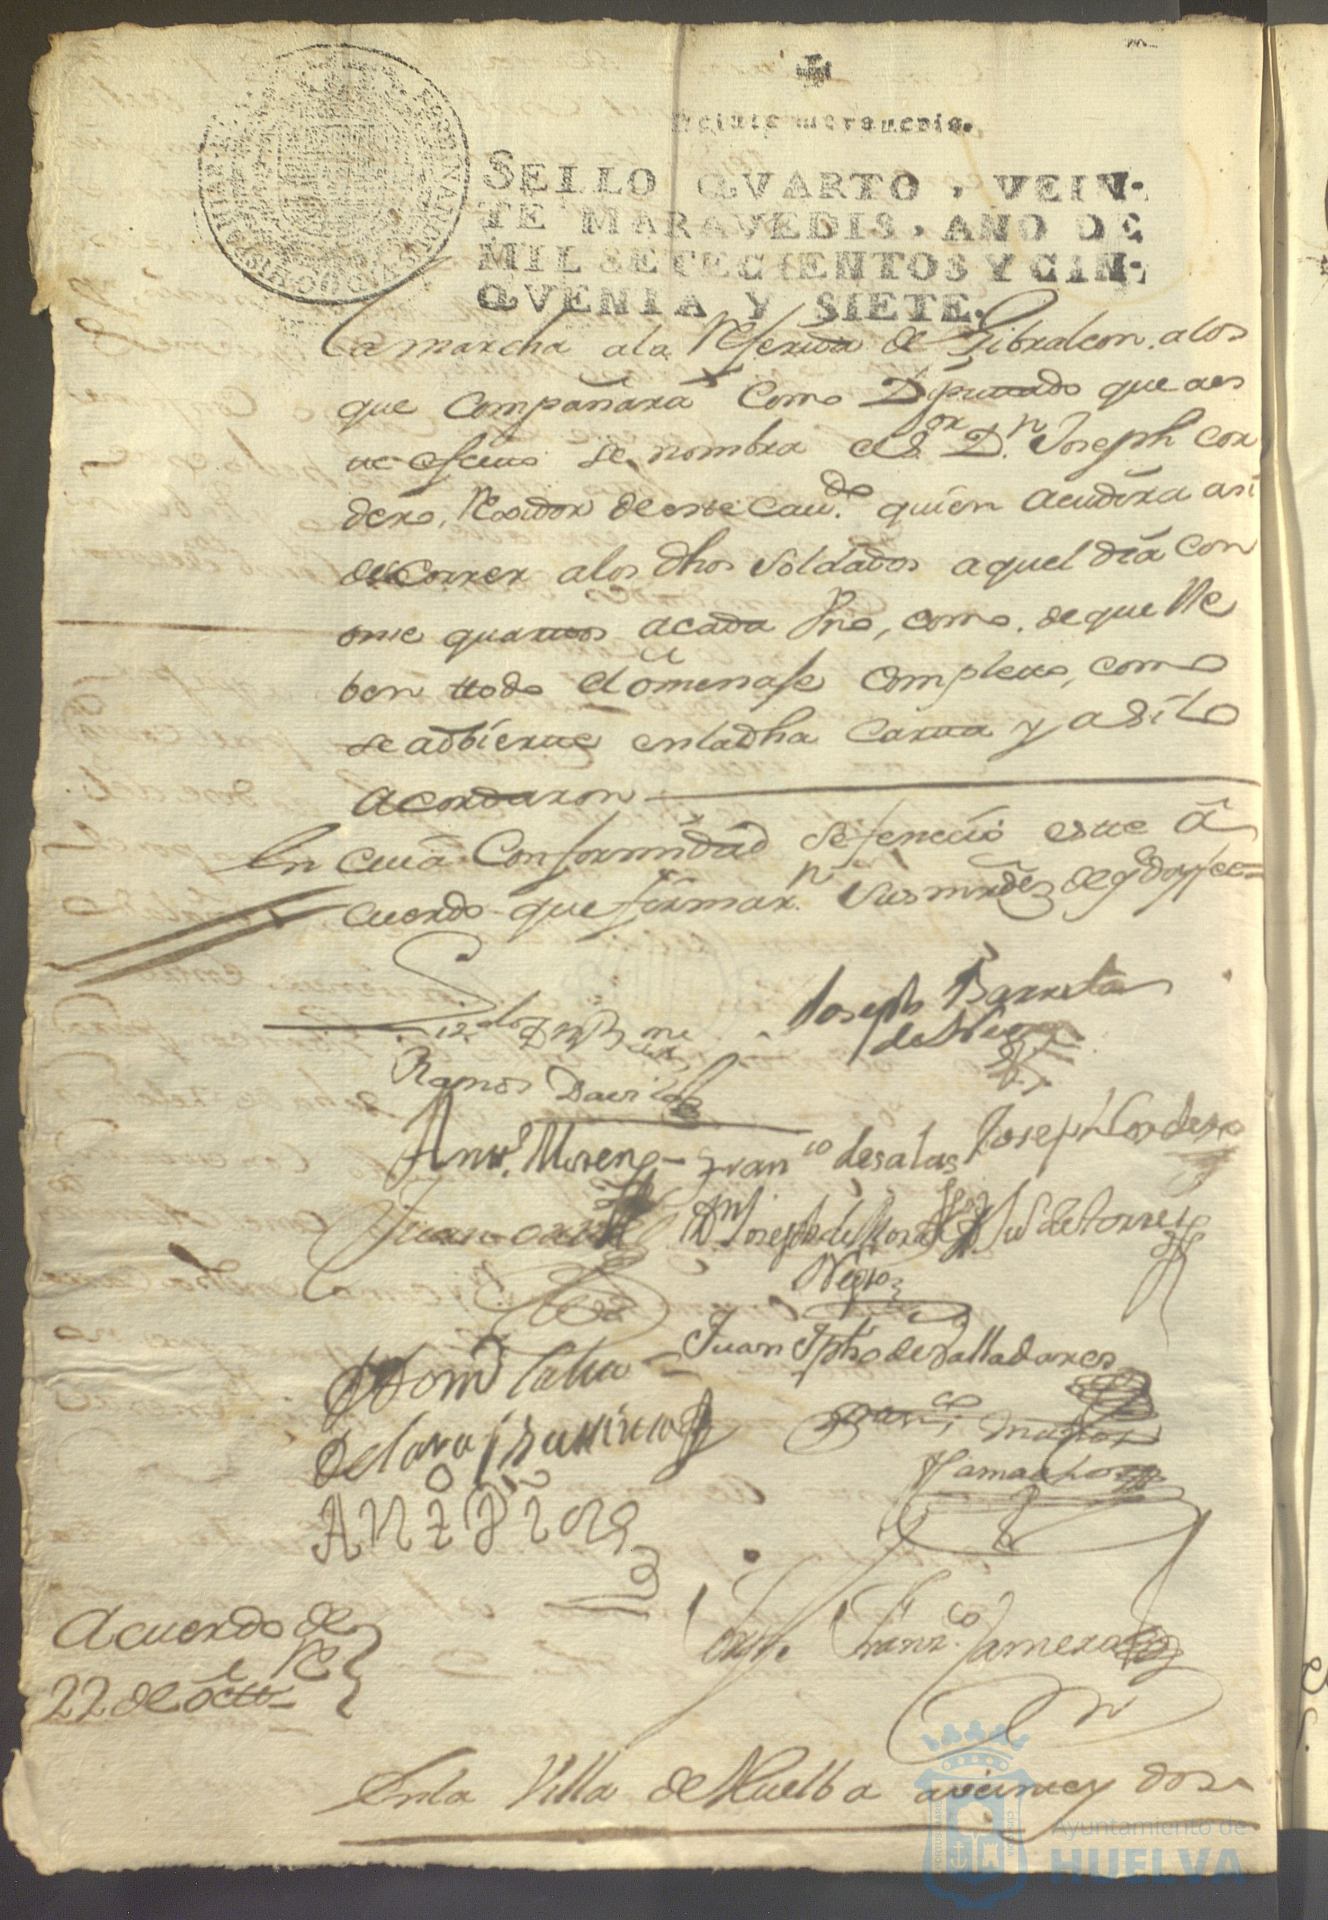 Veinte maravedis.
SELLO QVARTO, VEIN-
TE MARAVEDIS, AÑO DE
MIL SETECIENTOS Y CIN-
QVENTA Y SIETE.
la marcha a la Referida de Gibraleon. a los
que Compañara como Diputado que a es
te efecto se nombra el Sor Dn Joseph Cor
dero, Rexidor de este Cavdo. quien acudira asi
de correr a los dhos soldados aquel dia con
onse quartos a cada Vno, como. de que lle
ben ttodo el omenaje completto, como
se adbierte en la dha Carta y asi lo
acordaron
En cuia Conformidad se fenecio este a
cuerdo que firmarn. sus mrdes de q doy fee=
Joseph Barreda
Ramos Davila
Antto. Moreno Franco de salas Joseph Cordero
Juan
Dn Joseph de Mora
Negro
de torres
Juan Jpho de Valladares
Franco. Muñoz
Franzco.
Acuerdo de
22 de octtre
En la Villa de Huelba a veinte y dos
Ayuntamiento de
HUELVA